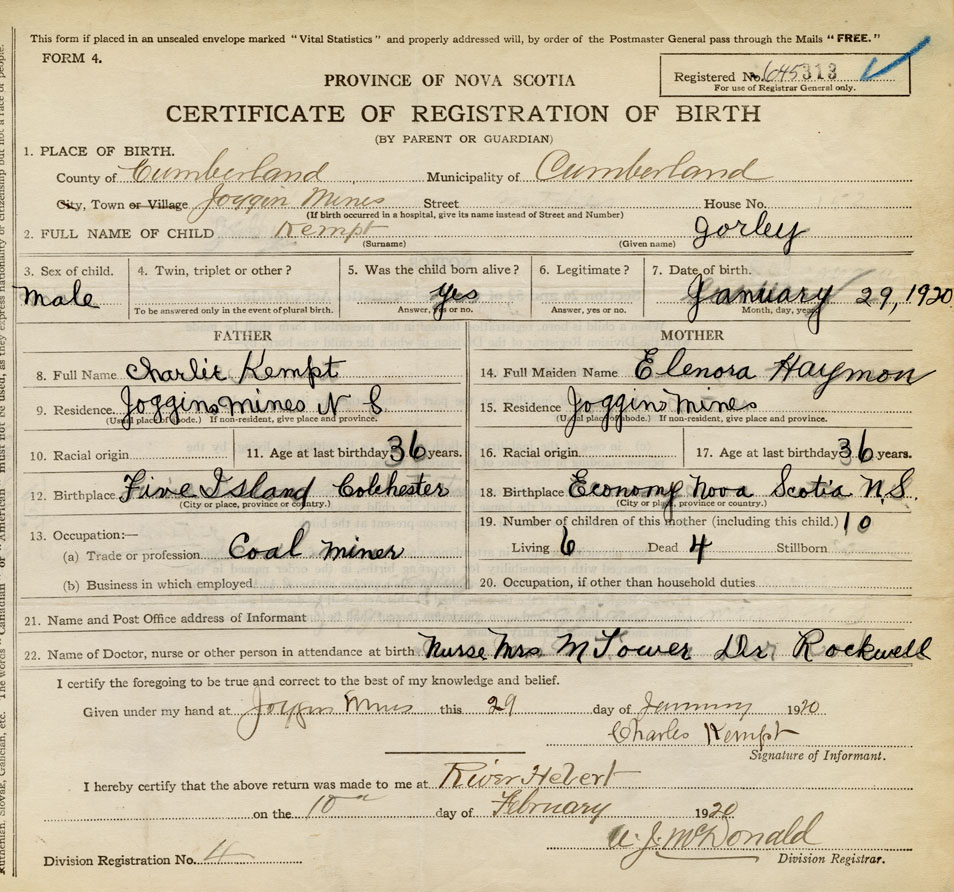 This form if placed in an unsealed envelope marked "Vital Statistics" and properly addressed will, by order of the Postmaster General pass through the Mails "FREE."
FORM 4.
Registered No. 645313
For use of Registrar General only.
PROVINCE OF NOVA SCOTIA
CERTIFICATE OF REGISTRATION OF BIRTH
(BY PARENT OR GUARDIAN)
1. PLACE OF BIRTH.
County of Cumberland Municipality of Cumberland
City, Town or Village Joggin Mines Street House No.
(If birth occurred in a hospital, give its name instead of Street and Number)
2. FULL NAME OF CHILD Kempt Jorley
(Surname) (Given name)
3. Sex of child. 4. Twin, triplet or other? 5. Was the child born alive? 6. Legitimate? 7. Date of birth.
male yes January 29, 1920
To be answered only in the event of plural birth. Answer, yes or no. Answer, yes or no. Month, day, year
FATHER MOTHER
8. Full Name Charlie Kempt
14. Full Maiden Name Elenora Haymon
9. Residence Joggins mines N S
(Usual place of abode.) If non-resident, give place and province.
15. Residence Joggins mines
(Usual place of abode.) If non-resident, give place and province.
10. Racial origin 11. Age at last birthday 36 years.
16. Racial origin 17. Age at last birthday 36 years.
12. Birthplace Five Island Colchester
(City or place, province or country.)
18. Birthplace Economy Nova Scotia N.S.
(City or place, province or country.)
13. Occupation:—
(a) Trade or profession Coal miner
(b) Business in which employed
19. Number of children of this mother (including this child.) 10
Living 6 Dead 4 Stillborn
20. Occupation, if other than household duties.
21. Name and Post Office address of Informant
22. Name of Doctor, nurse or other person in attendance at birth Nurse Mrs M Tower Dr Rockwell
I certify the foregoing to be true and correct to the best of my knowledge and belief.
Given under my hand at Joggin Mines this 29 day of January 1920
Charles Kempt
Signature of Informant.
I hereby certify that the above return was made to me at River Hebert
on the 10 day of February 1920
A. J. McDonald
Division Registration No. 4 Division Registrar.